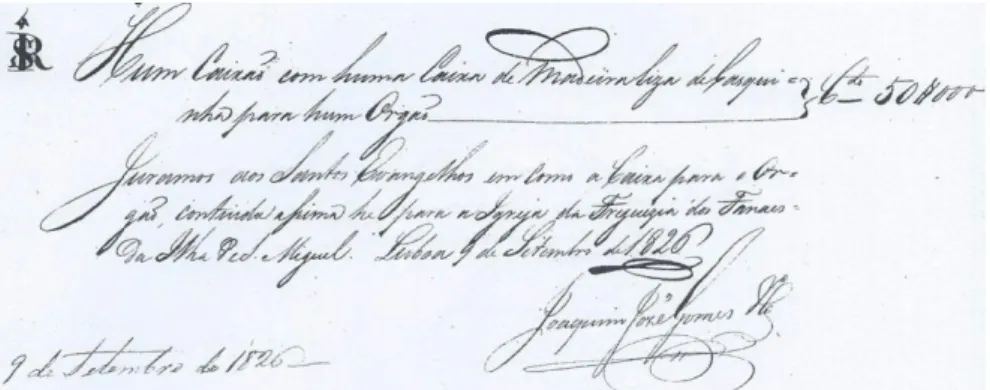 Hum Caixaõ com huma Caixa de Madeira liza de Casqui=
nha para hum Orgaõ 50$000
Juramos aos Santos Evangelhos em como a Caixa para o Or=
gaõ, contiuda asima he para a Igreja da Freguezia dos Fanaes=
da Ilha de S. Miguel. Lisboa 9 de Setembro de 1826
Joaquim José Gomes
9 de Setembro de 1826